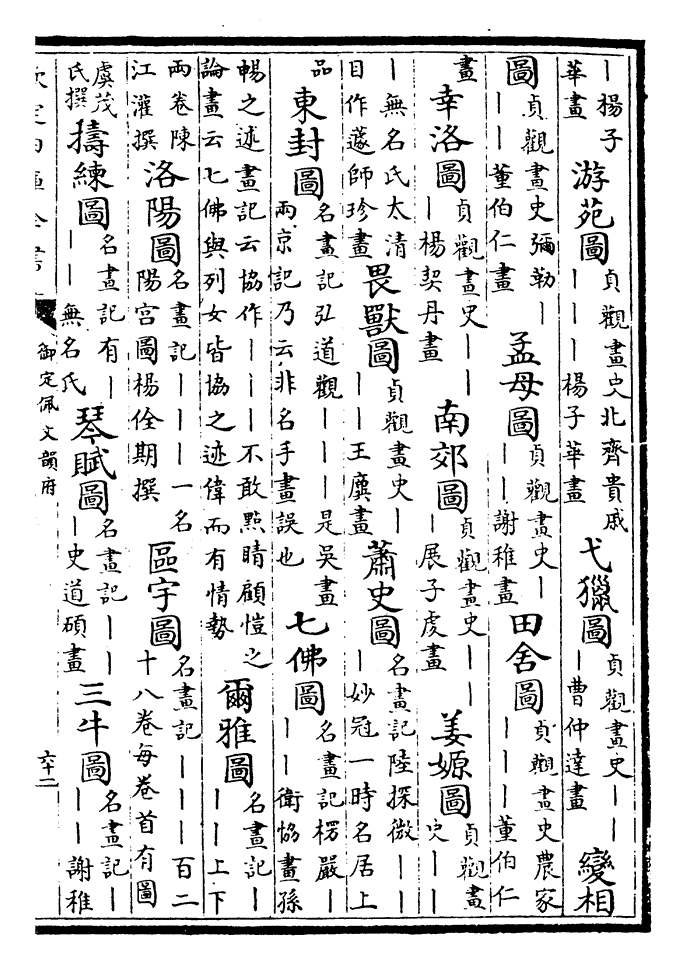 丨楊子華畫 游苑圖 貞觀畫史北齊貴戚丨丨丨楊子華畫 弋獵圖 貞觀畫史丨丨曹仲達畫 變相
圖 貞觀畫史彌勒丨丨丨董伯仁畫 孟母圖 貞觀畫史丨丨謝稚畫 田舍圖 貞觀畫史農家丨丨丨董伯仁
畫 幸洛圖 貞觀畫史丨丨丨楊契丹畫 南郊圖 貞觀畫史丨丨丨展子虔畫 姜嫄圖 貞觀畫史丨丨
丨無名氏太清目作蘧師珍畫 畏獸圖 貞觀畫史丨丨丨王廙畫 蕭史圖 名畫記陸探微丨丨丨妙冠一時名居上
品 東封圖 名畫記弘道觀丨丨丨是吳畫兩京記乃云非名手畫誤也 七佛圖 名畫記楞嚴丨丨丨衛協畫孫
暢之述畫記云協作丨丨丨不敢點睛顧愷之論畫云七佛與列女皆協之迹偉而有情勢 爾雅圖 名畫記丨丨丨上下
兩卷陳江灌撰 洛陽圖 名畫記丨丨丨一名陽宮圖楊佺期撰 區宇圖 名畫記丨丨丨百二十八卷每卷首有圖
虞茂氏撰 擣練圖 名畫記有丨丨丨無名氏 琴賦圖 名畫記丨丨丨史道碩畫 三牛圖 名畫記丨丨丨謝稚
欽定四庫全書
御定佩文韻府
六十二